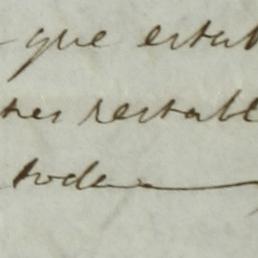 que estab
restabl
toda